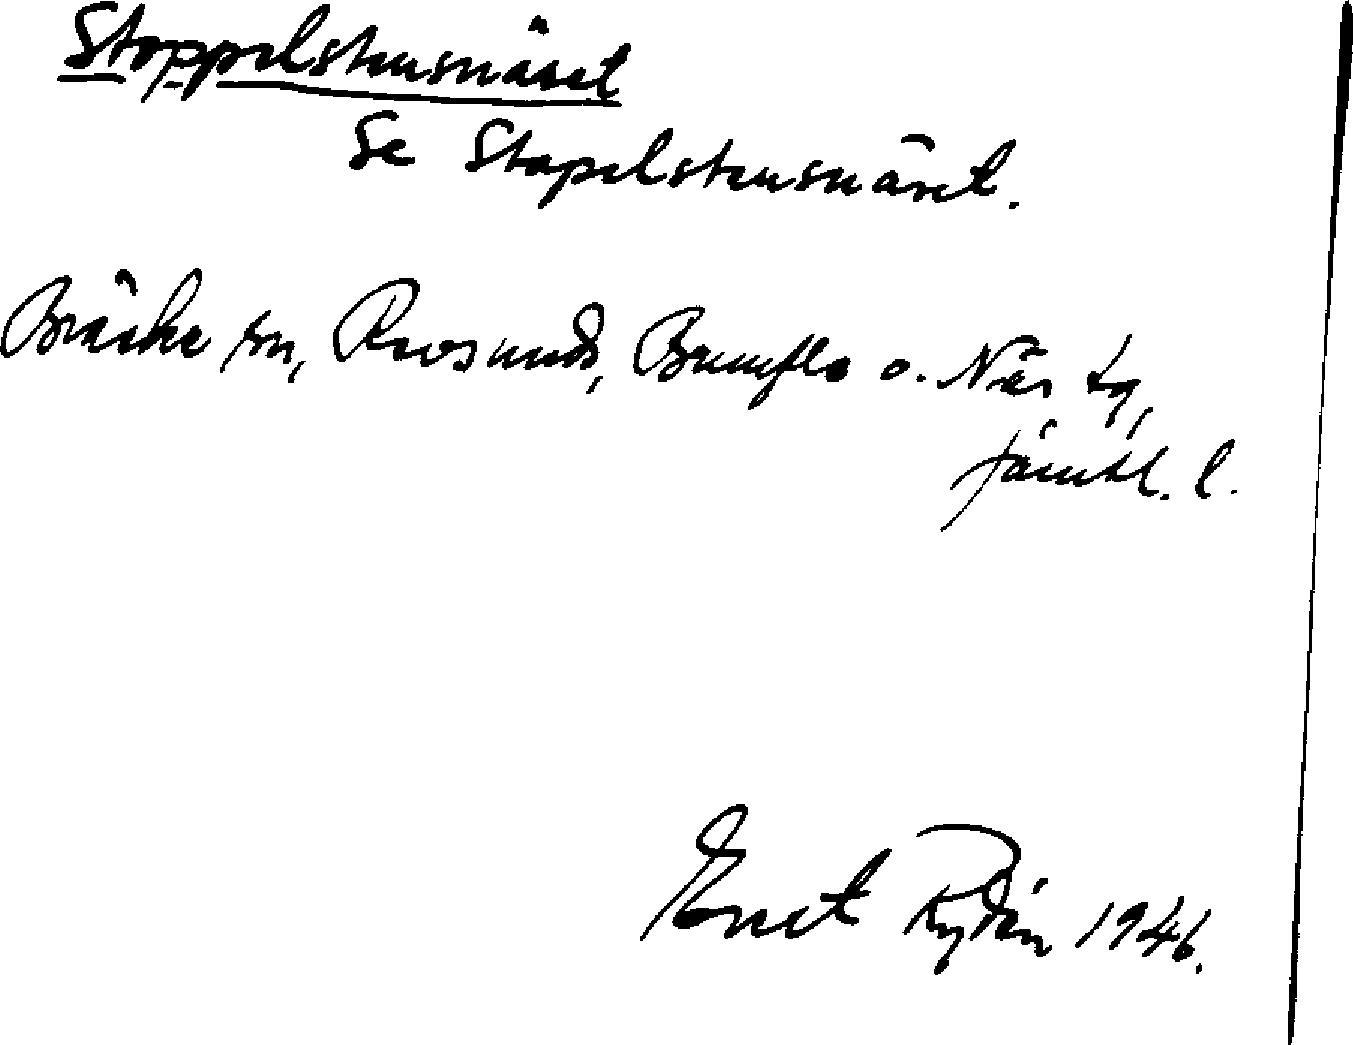 Stoppelstensnäset
Se Stapelstensnäset.
Bräcke sn, Revsunds, Brunflo o. Näs tg,
Jämtl. l.
Ernst Rydén 1946.